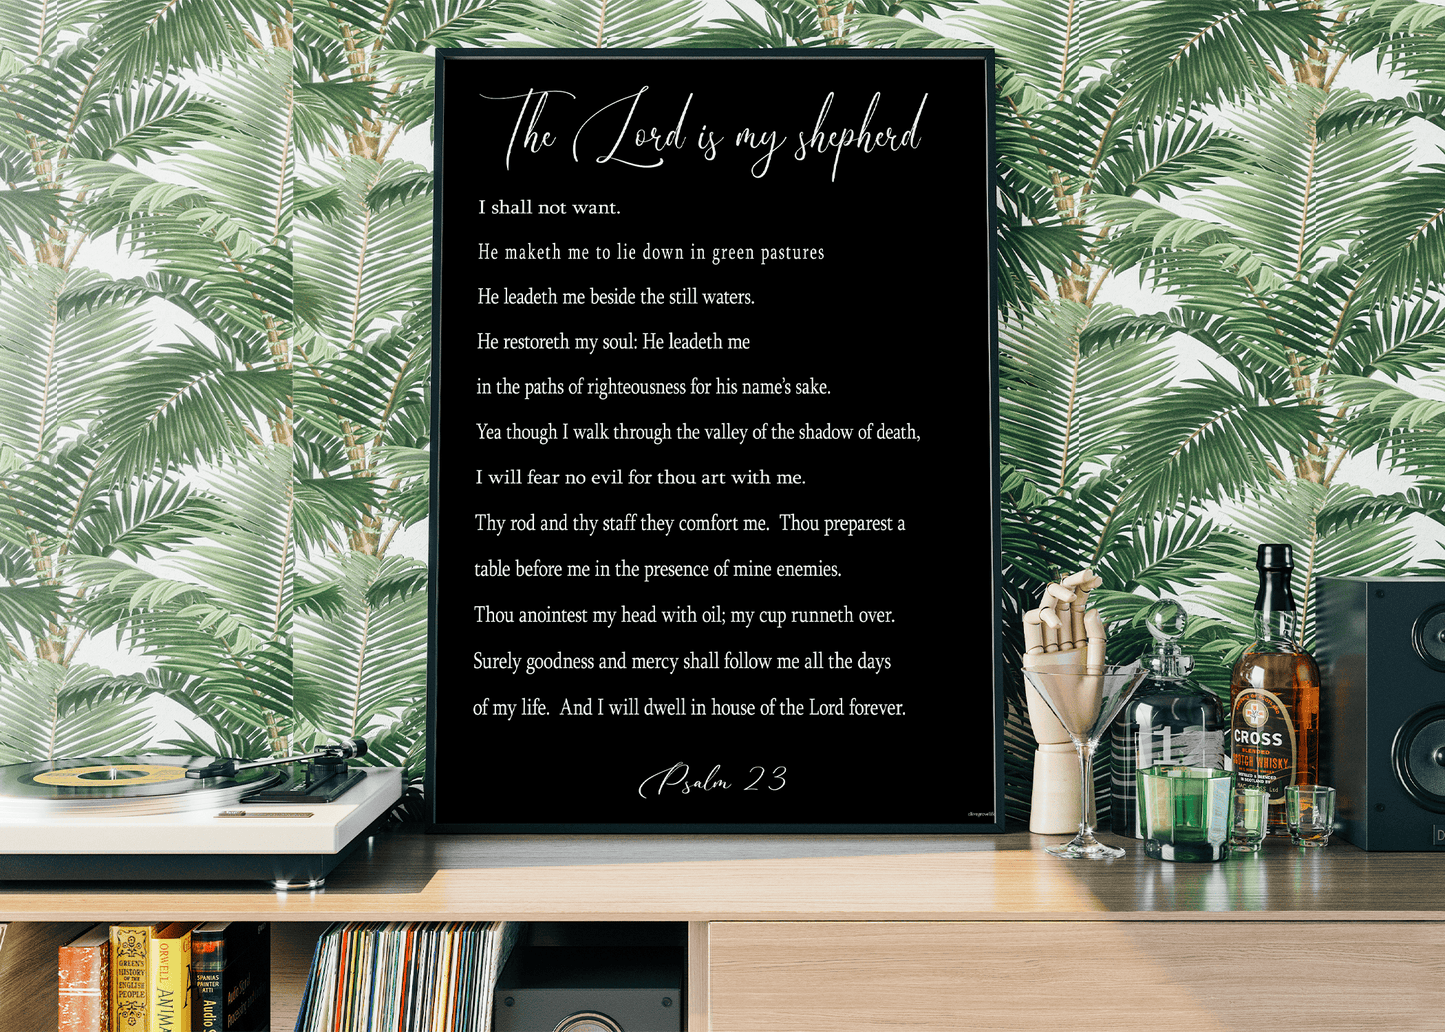 The Lord is my shepherd
I shall not want.
He maketh me to lie down in green pastures
He leadeth me beside the still waters.
He restoreth my soul: He leadeth me
in the paths of righteousness for his name's sake.
Yea though I walk through the valley of the shadow of death,
I will fear no evil for thou art with me.
Thy rod and thy staff they comfort me. Thou preparest a
table before me in the presence of mine enemies.
Thou anointest my head with oil; my cup runneth over.
Surely goodness and mercy shall follow me all the days
of my life. And I will dwell in house of the Lord forever.
Psalm 23
CROSS
BLENDED
SCOTCH WHISKY
1
GREEN'S
HISTORY
OF THE
ENGLISH
PEOPLE
ORWELL
SPANIAS
PAINTER
ATTI
Audio